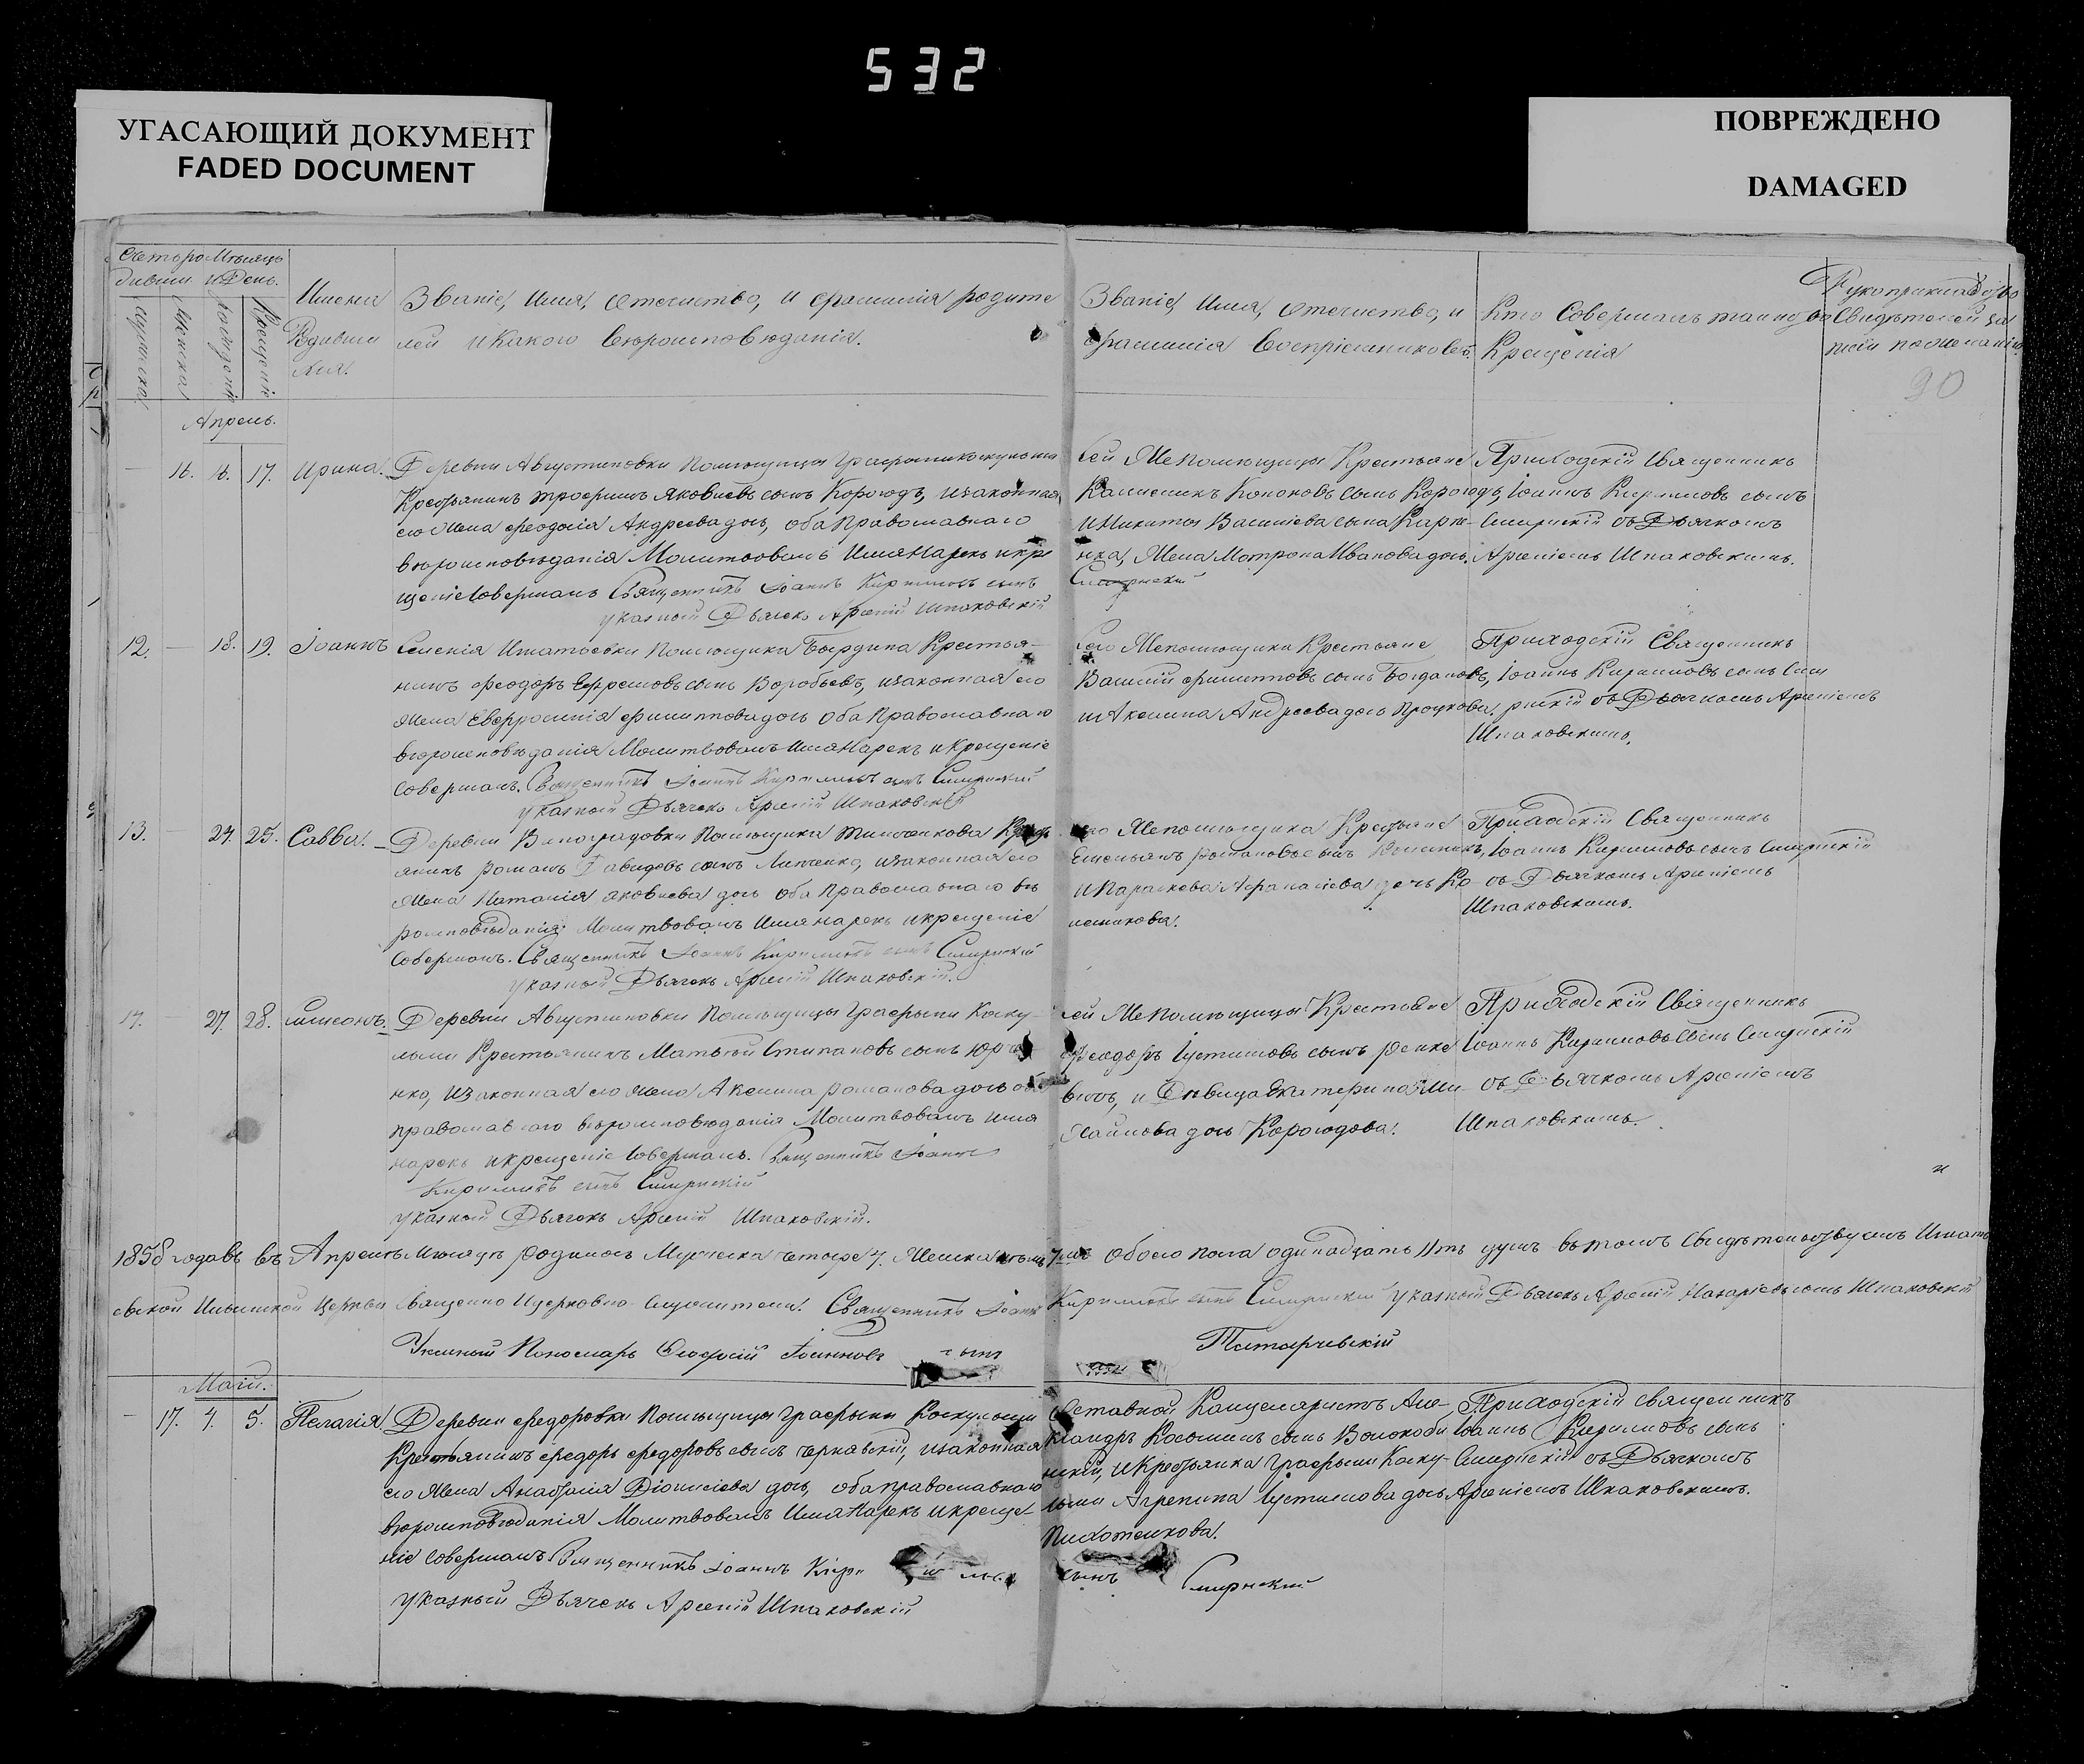 532
УГАСАЮЩИЙ ДОКУМЕНТ
FADED DOCUMENT
ПОВРЕЖДЕНО
DAMAGED
Счетъ ро Мѣсяцъ
дивши и День.
Имена
Званіе, Имя, Отечиство, и фамилія родите
лей и какого вѣроисповѣданія.
Званіе, Имя, Отечиство, и
фамилія Воспріемниковъ.
Кто Совершалъ таинство
Крещенія
Рукоприкладство
Свидѣтелей за
писи по желанію
90
Апрель.
16. 16. 17. Ирина.
Деревни Августиновки Помѣщицы Графини Коскульши
Крестьянинъ Трофимъ Яковлевъ сынъ Корогодъ, и законная
его Жена Феодосія Андреева дочь, оба Православнаго
вѣроисповѣданія Молитвовалъ Имя Нарекъ и кре
щеніе Совершалъ Священникъ Іоаннъ Кириловъ сынъ
указный Дьячекъ Арсеній Шпаковскій
сей же Помѣщицы Крестьяне
Каленикъ Кононовъ сынъ Корогодъ,
и Никиты Василіева сына
Жена Матрона Иванова дочь.
Приходскій Священникъ
Іоаннъ Кириловъ сынъ
Смирнскій съ Дьячкомъ
Арсеніемъ Шпаковскимъ.
12. — 18. 19. Іоаннъ
Селенія Игнатьевки Помѣщика Бердина Крестья-
нинъ Феодоръ Ефремовъ сынъ Воробьевъ, и законная его
Жена Евфросинія Филиппова дочь оба Православнаго
вѣроисповѣданія Молитвовалъ Имя Нарекъ и Крещеніе
Совершалъ. Священникъ Іоаннъ Кириловъ сынъ Смирнскій
указный Дьячекъ Арсеній Шпаковскій
сего же помѣщика Крестьяне
Василій Филиповъ сынъ Богдановъ,
и Акелина Андреева дочь
Приходскій Священникъ
Іоаннъ Кириловъ сынъ Сми
рнскій съ Дьячкомъ Арсеніемъ
Шпаковскимъ.
13. 24. 25. Савва.
Деревни Виноградовки Помѣщика
янинъ Романъ Давидовъ сынъ Литченко, и законная его
Жена Наталія Яковлева дочь оба Православнаго вѣ
роисповѣданія Молитвовалъ Имя нарекъ и крещеніе
Совершалъ. Священникъ Іоаннъ Кириловъ сынъ Смирнскій
указный Дьячекъ Арсеній Шпаковскій.
сего же помѣщика Крестьяне
Емельянъ Романовъ сынъ
и Параскева Афанасіева дочь Ко
Приходскій Священникъ
Іоаннъ Кириловъ сынъ Смирнскій
съ Дьячкомъ Арсеніемъ
Шпаковскимъ.
14. 27. 28. Симеонъ.
Деревни Августиновки Помѣщицы Графини Коску-
льши Крестьянинъ Матвѣй Стипановъ сынъ Юрче
нко, и законная его жена Акелина Романова дочь оба
православнаго вѣроисповѣданія Молитвовалъ имя
нарекъ и крещеніе Совершалъ. Священникъ Іоаннъ
Кириловъ сынъ Смирнскій
указный Дьячекъ Арсеній Шпаковскій.
сей же помѣщицы Крестьяне
Феодоръ Іустиновъ сынъ
и Дѣвица Екатерина Ми
хайлова дочь Корогодова.
Приходскій Священникъ
Іоаннъ Кириловъ сынъ Смирнскій
съ Дьячкомъ Арсеніемъ
Шпаковскимъ.
1858 года въ Апрелѣ Мѣсяцѣ родилось Мужеска четыре 4. Женска 7мъ обоего пола одинадцать 11ть душъ въ томъ Свидѣтельствуемъ Игнать
евской Ильинской Церкви Священно и церковно служители. Священникъ Іоаннъ Кириловъ сынъ Смирнскій указный Дьячекъ Арсеній Назаріевъ сынъ Шпаковскій
Указный Пономарь Феофасій Іоанновъ сынъ Татарчевскій
Маій.
17. 4. 5. Пелагія
Деревни Федоровки Помѣщицы Графини Коскульши
Крестьянинъ Федоръ Федоровъ сынъ Чернявскій, и законная
его Жена Анастасія Діонисіева дочь, оба православнаго
вѣроисповѣданія Молитвовалъ Имя Нарекъ и креще-
ніе Совершалъ Священникъ Іоаннъ
указный Дьячекъ Арсеній Шпаковскій
Отставной Канцеляристъ Але-
ксандръ Косминъ сынъ
и Крестьянка Графини Коску-
льши Агрепина Іустинова дочь
Пихотенкова.
сынъ Смирнскій
Приходскій Священникъ
Іоаннъ Кириловъ сынъ
Смирнскій съ Дьячкомъ
Арсеніемъ Шпаковскимъ.